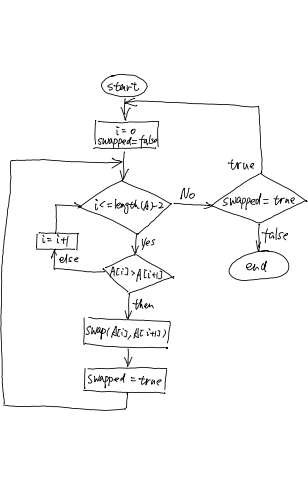 start
i = 0
swapped = false
i <= length(A)-2
No
true
swapped = true
false
end
yes
i = i+1
else
A[i] > A[i+1]
then
swap(A[i], A[i+1])
swapped = true